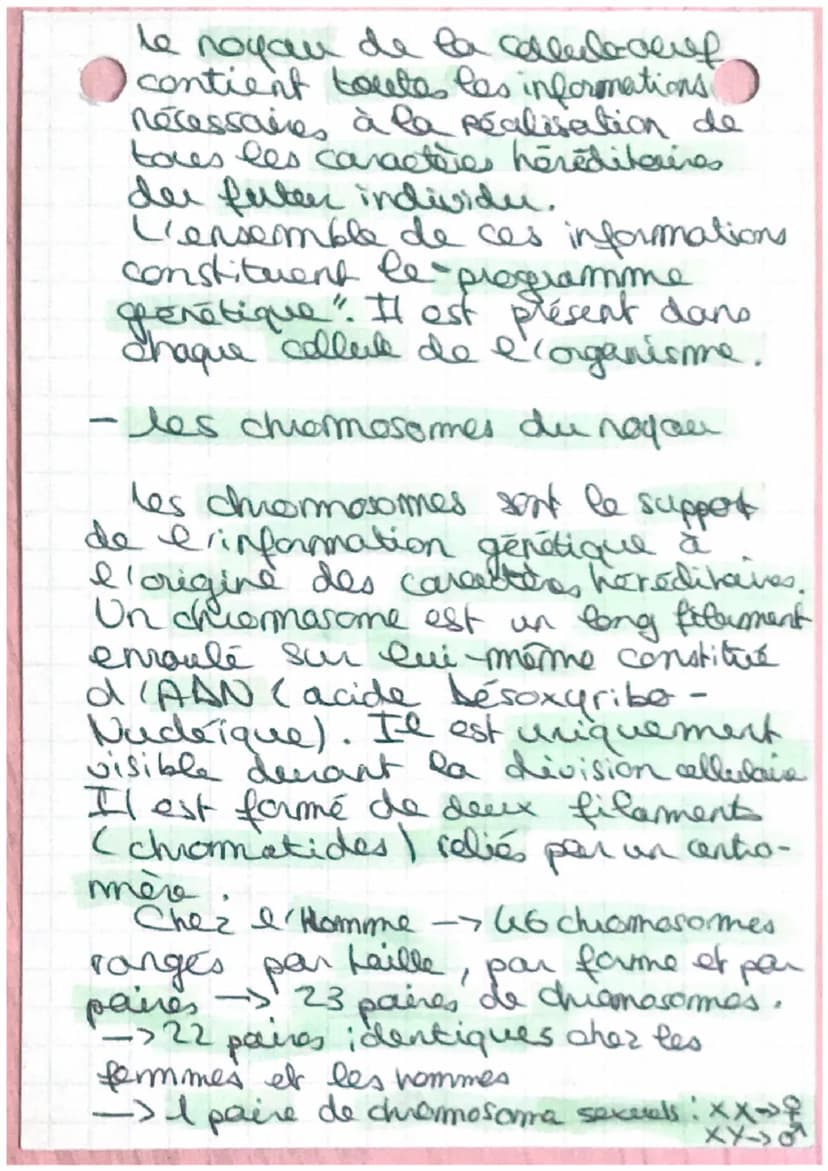 Le noyau de la cellule-oeuf
contient toutes les informations
nécessaires à la réalisation de
tous les caractères héréditaires
du futur individu.
L'ensemble de ces informations
constituent le "programme
génétique". Il est présent dans
chaque cellule de l'organisme.
- les chromosomes du noyau
Les chromosomes sont le support
de l'information génétique à
l'origine des caractères héréditaires.
Un chromosome est un long filament
enroulé sur lui-même constitué
d'ADN (acide Désoxyribo-
Nucléique). Il est uniquement
visible durant la division cellulaire
Il est formé de deux filaments
(chromatides) reliés par un centro-
mère.
Chez l'Homme -> 46 chromosomes
rangés par taille, par forme et par
paires -> 23 paires de chromosomes.
-> 22 paires identiques chez les
femmes et les hommes
-> 1 paire de chromosome sexuels : XX -> ♀
XY -> ♂